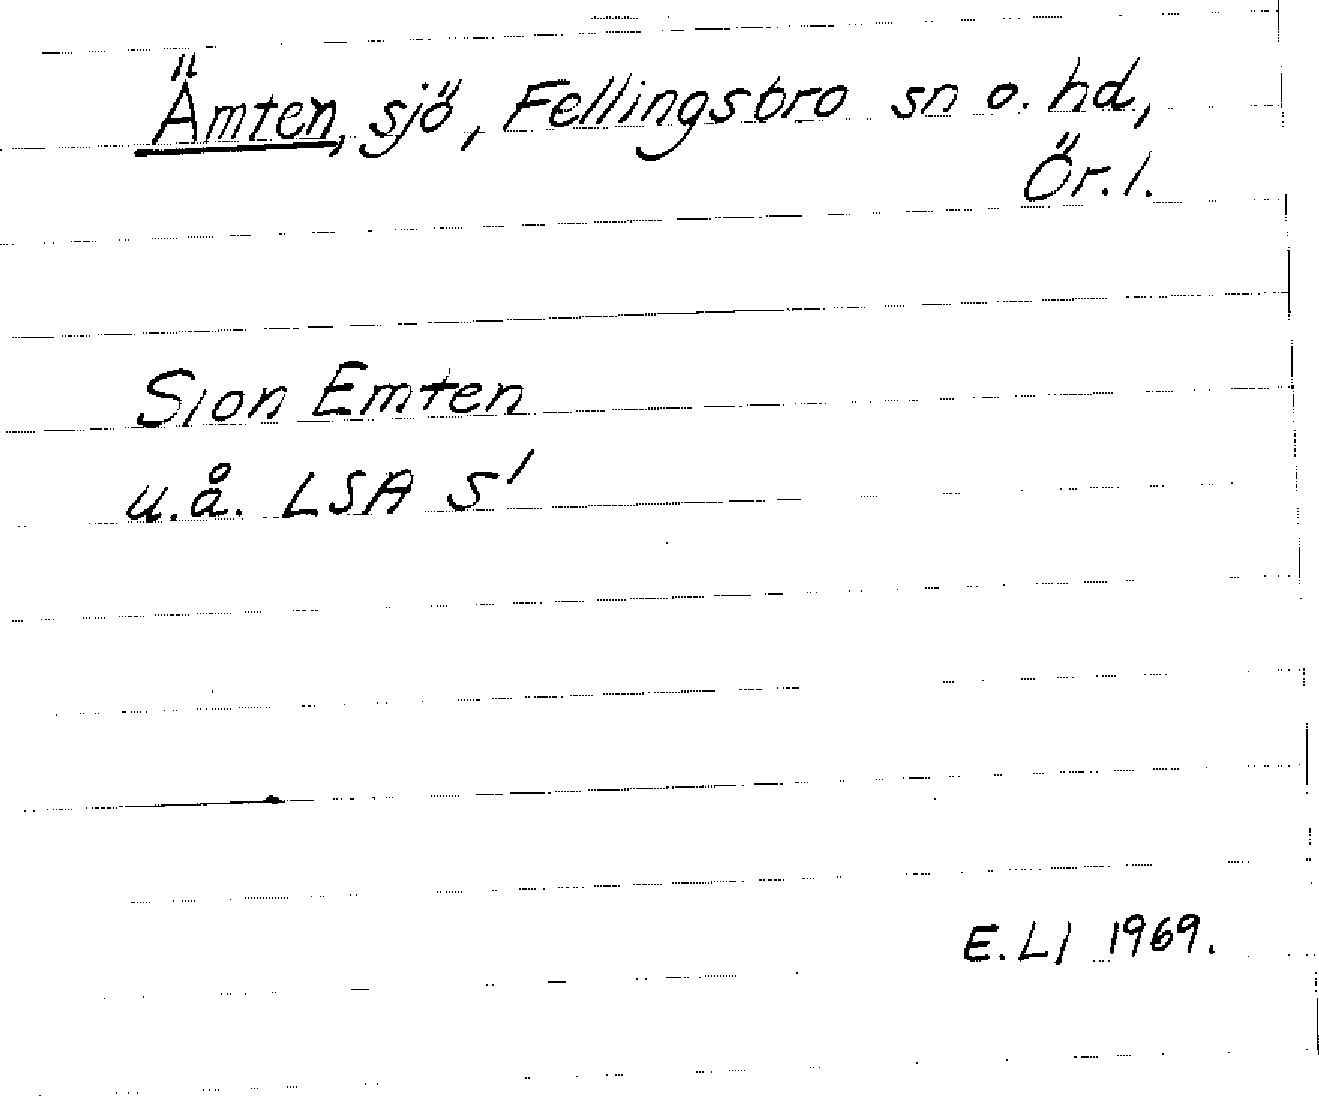 Ämten, sjö, Fellingsbro sn o. hd,
Ör. l.
Sion Emten
u.å. LSA S1
E. Ll 1969.